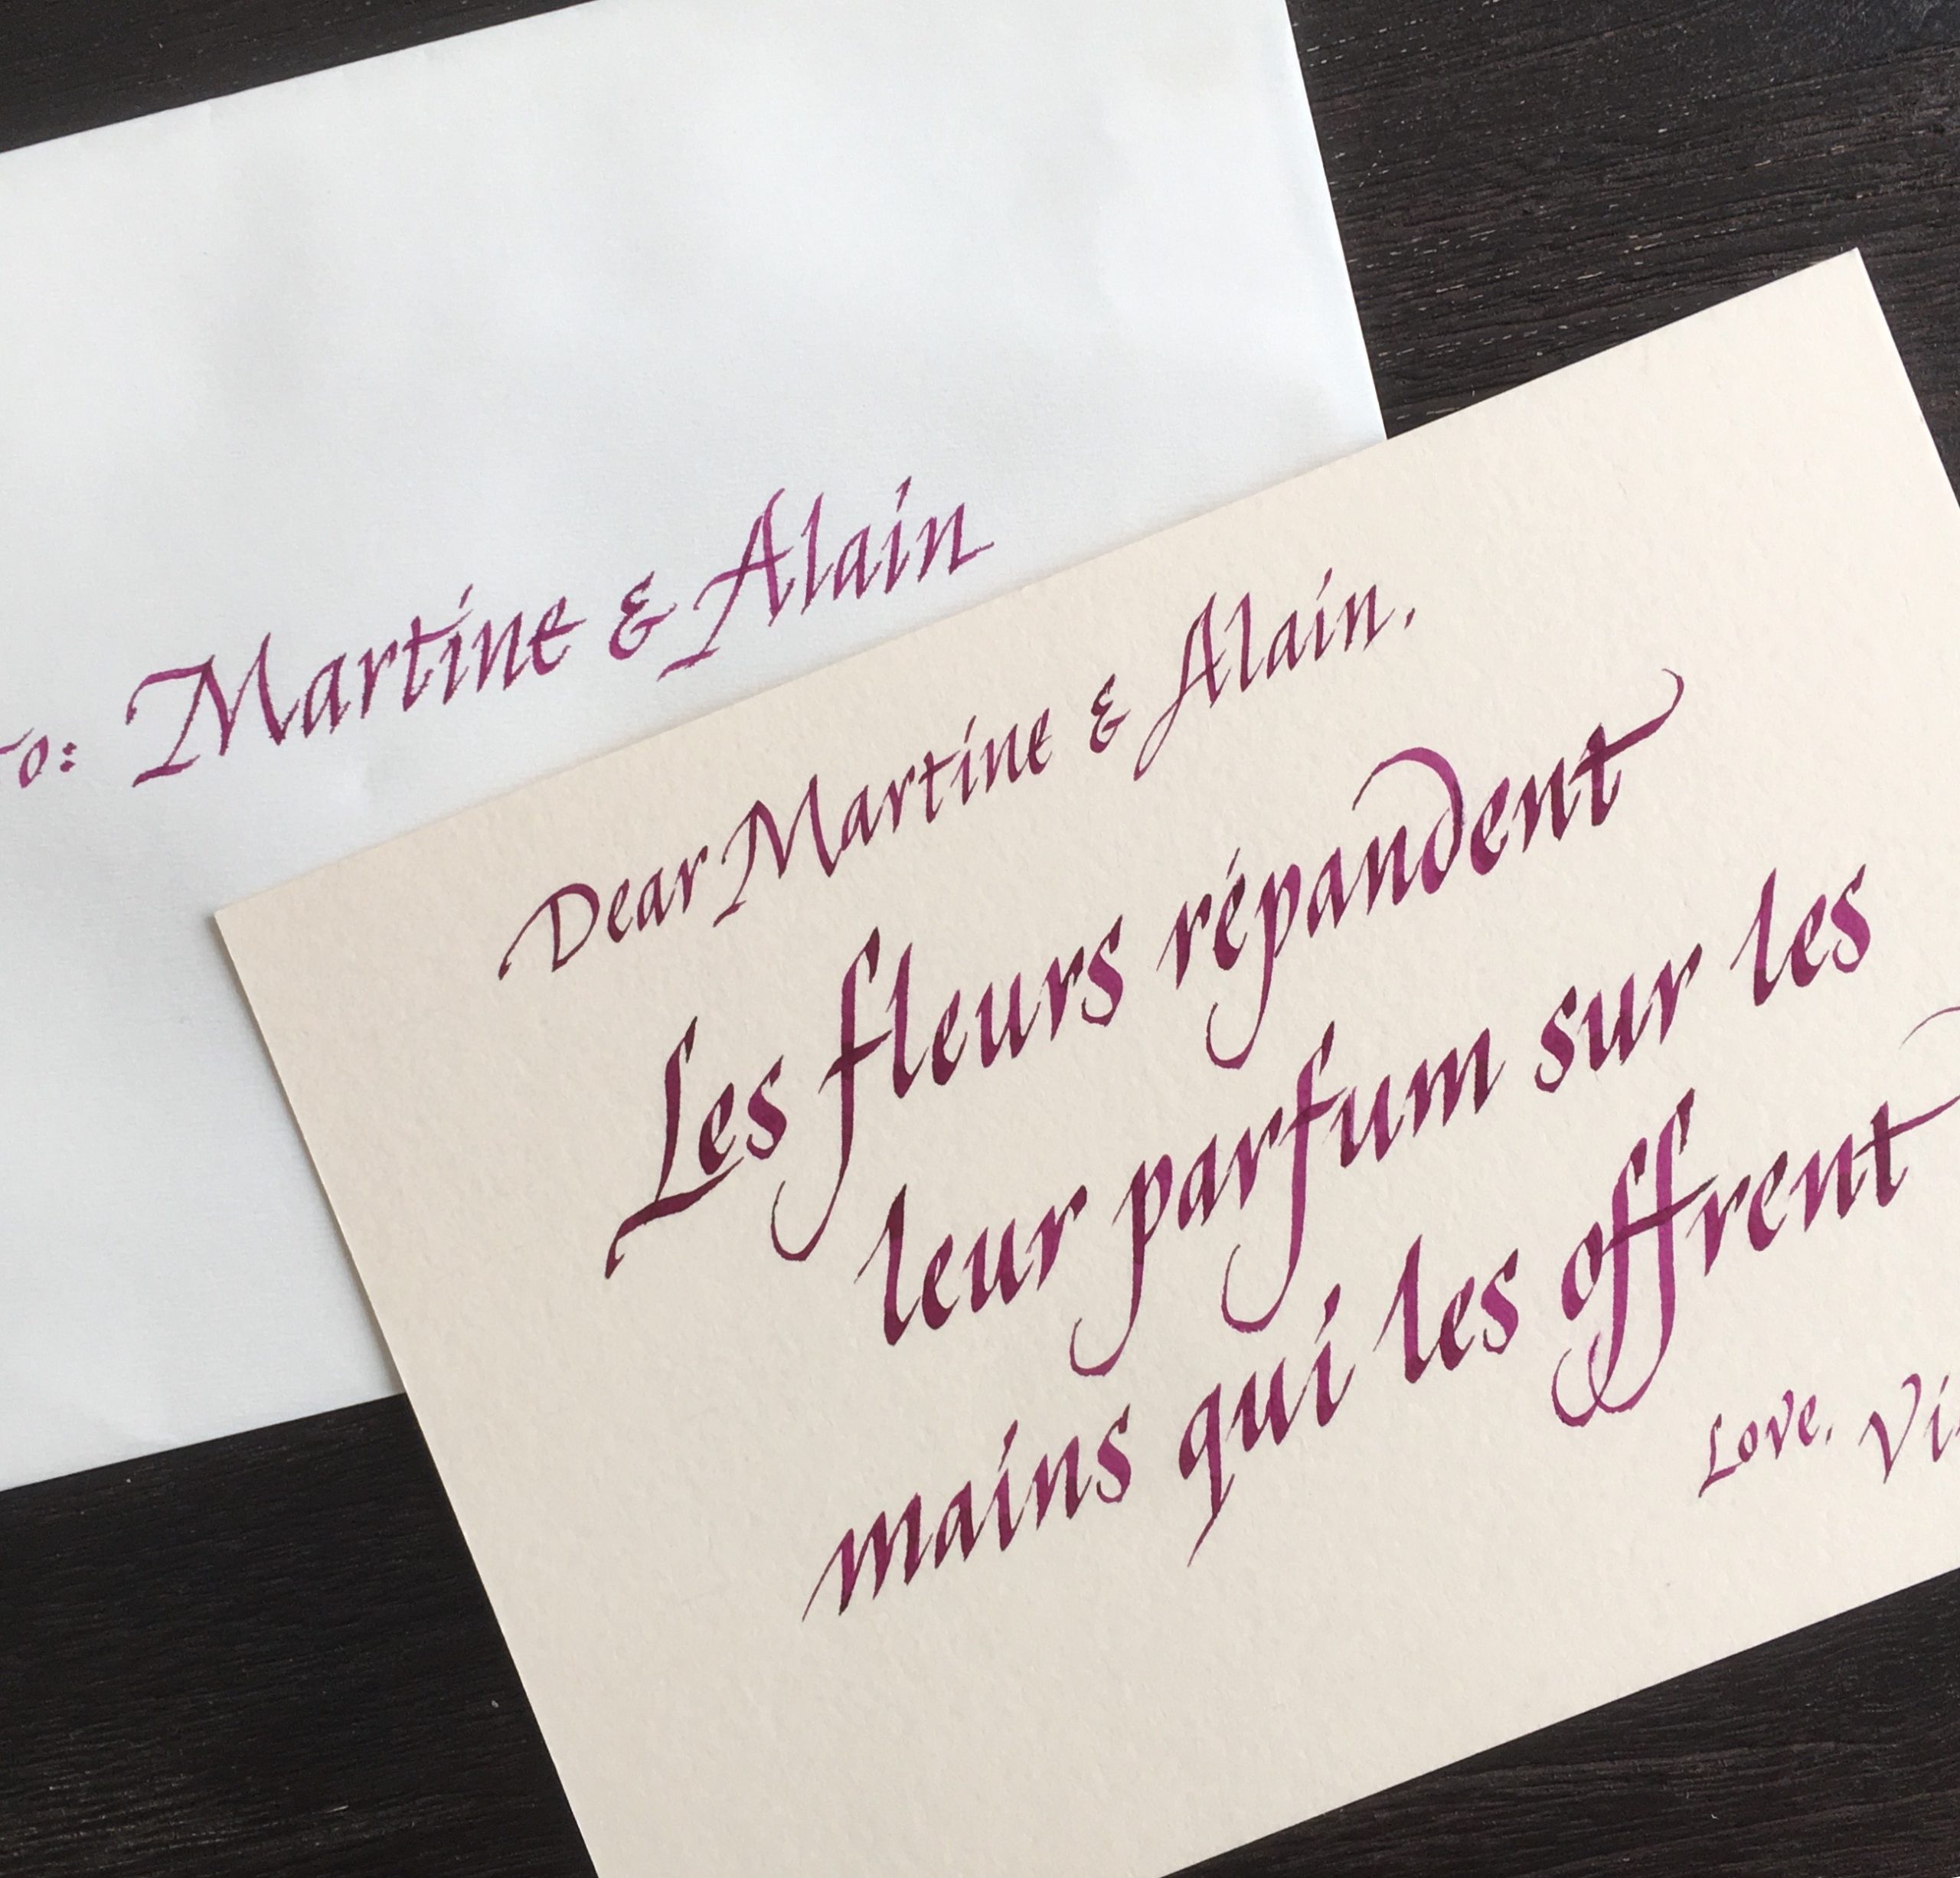 To: Martine & Alain
Dear Martine & Alain,
Les fleurs répandent
leur parfum sur les
mains qui les offrent
Love,